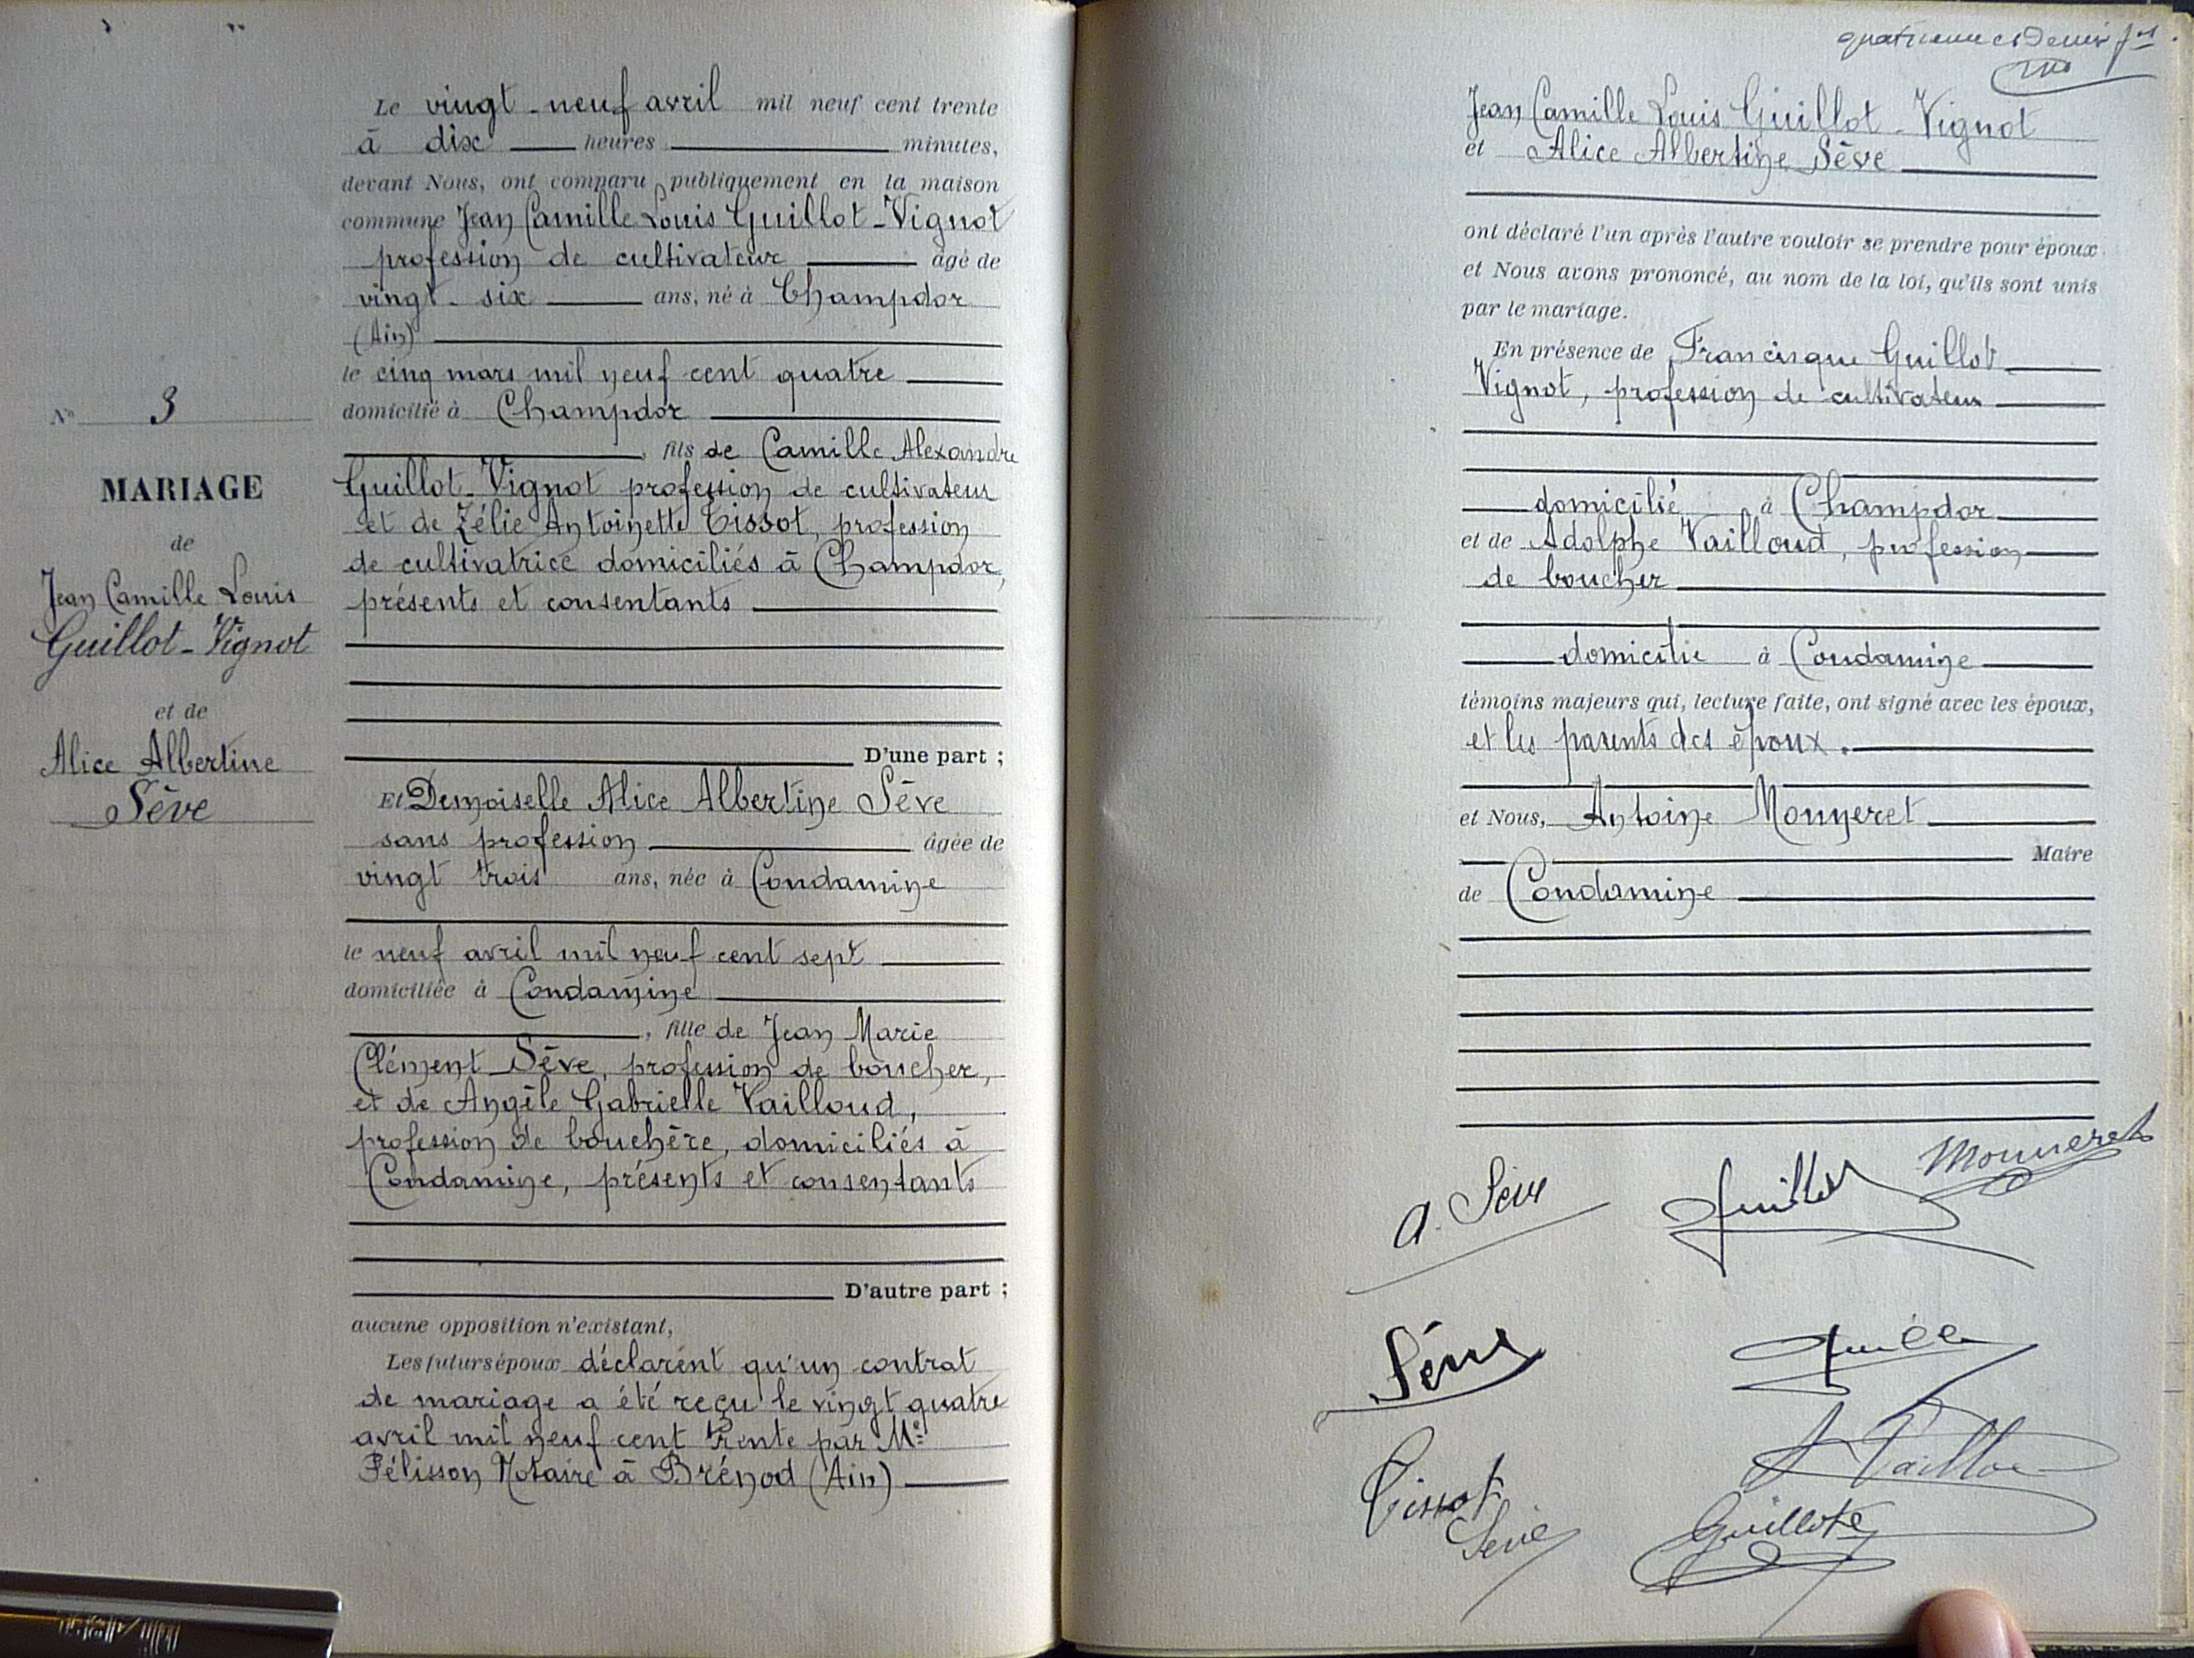 N° 3
MARIAGE
de
Jean Camille Louis
Guillot-Vignot
et de
Alice Albertine
Sève
Le vingt-neuf avril mil neuf cent trente
à dix heures minutes,
devant Nous, ont comparu publiquement en la maison
commune Jean Camille Louis Guillot-Vignot
profession de cultivateur âgé de
vingt-six ans, né à Champdor
(Ain)
le cinq mars mil neuf cent quatre
domicilié à Champdor
, fils de Camille Alexandre
Guillot-Vignot profession de cultivateur
et de Zélie Antoinette Tissot, profession
de cultivatrice domiciliés à Champdor,
présents et consentants
D'une part ;
Et Demoiselle Alice Albertine Sève
sans profession âgée de
vingt trois ans, née à Condamine
le neuf avril mil neuf cent sept
domiciliée à Condamine
, fille de Jean Marie
Clément Sève, profession de boucher,
et de Angèle Gabrielle Vailloud,
profession de bouchère, domiciliés à
Condamine, présents et consentants
D'autre part ;
aucune opposition n'existant,
Les futurs époux déclarent qu'un contrat
de mariage a été reçu le vingt quatre
avril mil neuf cent trente par Me
Pélisson Notaire à Brénod (Ain)
quatrième et
Jean Camille Louis Guillot-Vignot
et Alice Albertine Sève
ont déclaré l'un après l'autre vouloir se prendre pour époux
et Nous avons prononcé, au nom de la loi, qu'ils sont unis
par le mariage.
En présence de Francisque Guillot
Vignot, profession de cultivateur
domicilié à Champdor
et de Adolphe Vailloud, profession
de boucher
domicilié à Condamine
témoins majeurs qui, lecture faite, ont signé avec les époux,
et les parents des époux.
et Nous, Antoine Monneret
Maire
de Condamine
Monneret
A. Sève Guillot
Sève
A Vailloud
Tissot
Sève Guillot